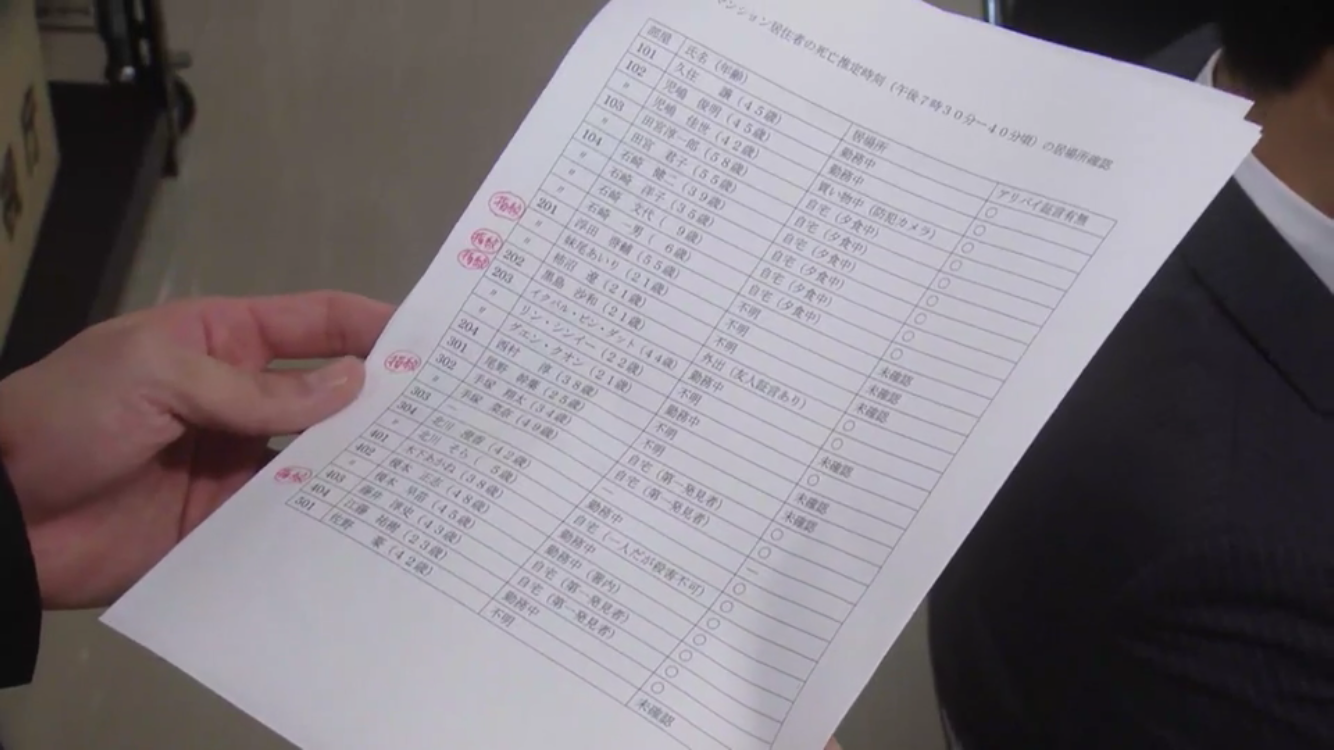 マンション居住者の死亡推定時刻(午後7時30分ー40分頃)の居場所確認
部屋 氏名(年齢) 居場所 アリバイ証言有無
101 久住 譲(45歳) 勤務中 ○
102 児嶋 俊明(45歳) 勤務中 ○
〃 児嶋 佳世(42歳) 買い物中(防犯カメラ) ○
103 田宮淳一郎(58歳) 自宅(夕食中) ○
〃 田宮 君子(55歳) 自宅(夕食中) ○
104 石崎 健二(39歳) 自宅(夕食中) ○
〃 石崎 洋子(35歳) 自宅(夕食中) ○
〃 石崎 文代( 9歳) 自宅(夕食中) ○
〃 石崎 一男( 6歳) 自宅(夕食中) ○
201 浮田 啓輔(55歳) 不明 未確認
〃 妹尾あいり(21歳) 不明 未確認
〃 柿沼 遼(21歳) 不明 未確認
202 黒島 沙和(21歳) 外出(友人証言あり) ○
203 イクバル・ビン・ダット(44歳) 勤務中 ○
〃 リン・シンイー(22歳) 不明 未確認
〃 グエン・クオン(21歳) 勤務中 ○
204 西村 淳(38歳) 不明 未確認
301 尾野 幹葉(25歳) 不明 未確認
302 手塚 翔太(34歳) 自宅(第一発見者) ○
〃 手塚 菜奈(49歳) 自宅(第一発見者) ○
303 ― ― ―
304 北川 澄香(42歳) 勤務中 ○
〃 北川 そら( 5歳) 自宅(一人だが殺害不可) ○
401 木下あかね(38歳) 勤務中 ○
402 榎本 正志(48歳) 勤務中(署内) ○
〃 榎本 早苗(45歳) 自宅(第一発見者) ○
403 藤井 淳史(43歳) 自宅(第一発見者) ○
404 江藤 祐樹(23歳) 勤務中 ○
501 佐野 豪(42歳) 不明 未確認